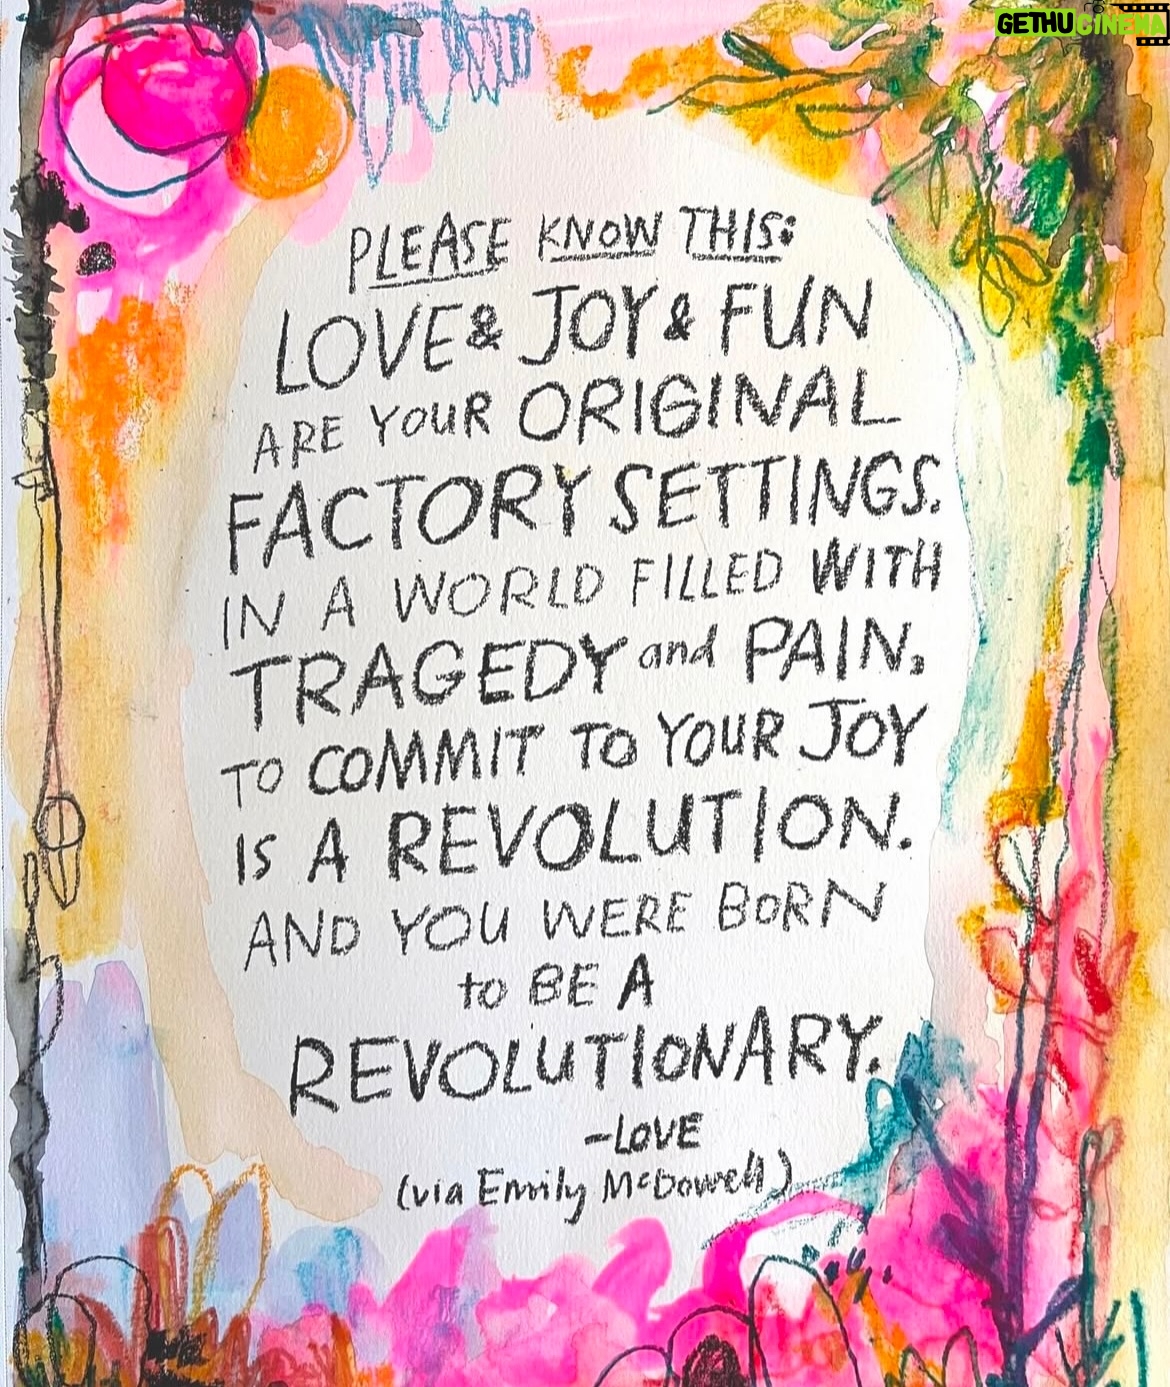 GETHUCINEMA
PLEASE KNOW THIS:
LOVE & JOY & FUN
ARE YOUR ORIGINAL
FACTORY SETTINGS.
IN A WORLD FILLED WITH
TRAGEDY and PAIN,
TO COMMIT TO YOUR JOY
IS A REVOLUTION.
AND YOU WERE BORN
to BE A
REVOLUTIONARY.
-LOVE
(via Emily McDowell)